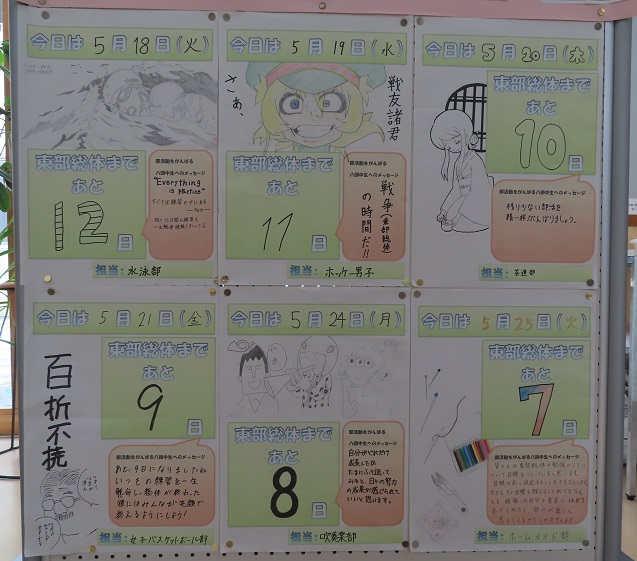 今日は 5月18日(火)
東部総体まで
あと
12日
部活動をがんばる
八頭中生へのメッセージ
"Everything
is practice"
担当：水泳部
今日は 5月19日(水)
さぁ、
戦友諸君
東部総体まで
あと
11日
部活動をがんばる
八頭中生へのメッセージ
戦争(東部総体)
の時間だ!!
担当：ホッケー男子
今日は 5月20日(木)
東部総体まで
あと
10日
部活動をがんばる八頭中生へのメッセージ
残り少ない部活を
精一杯がんばりましょう。
担当：茶道部
今日は 5月21日(金)
百折不撓
東部総体まで
あと
9日
部活動をがんばる八頭中生へのメッセージ
あと、9日になりましたね
いつもの練習を一生
懸命し、総体が終わった
後にはみんなが笑顔で
終えるようにしよう!
担当：女子バスケットボール部
今日は 5月24日(月)
東部総体まで
あと
8日
部活動をがんばる
八頭中生へのメッセージ
自分がどれだけ
成長したか
たまにふり返って
みると、日々の努力
の成果が感じられて
いいと思います。
担当：吹奏楽部
今日は 5月25日(火)
東部総体まで
あと
7日
部活動をがんばる八頭中生へのメッセージ
担当：ホームメイド部